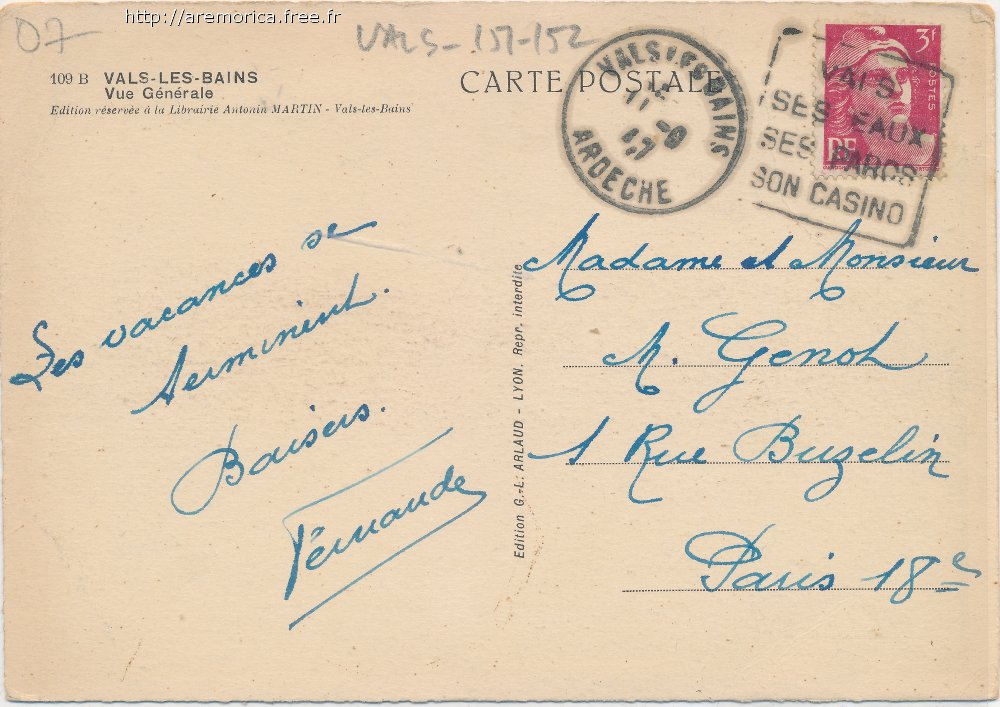 http://aremorica.free.fr
07
VALS-151-152
109 B VALS-LES-BAINS
Vue Générale
Edition réservée à la Librairie Antonin MARTIN - Vals-les-Bains
CARTE POSTALE
VALS LES BAINS
ARDECHE
3F
POSTES
RF
VALS
SES EAUX
SES PARCS
SON CASINO
Les vacances se
terminent.
Baisers.
Fernande
Edition G.-L. ARLAUD - LYON. Repr. interdite
Madame et Monsieur
M. Genot
1 Rue Buzelin
Paris 18e